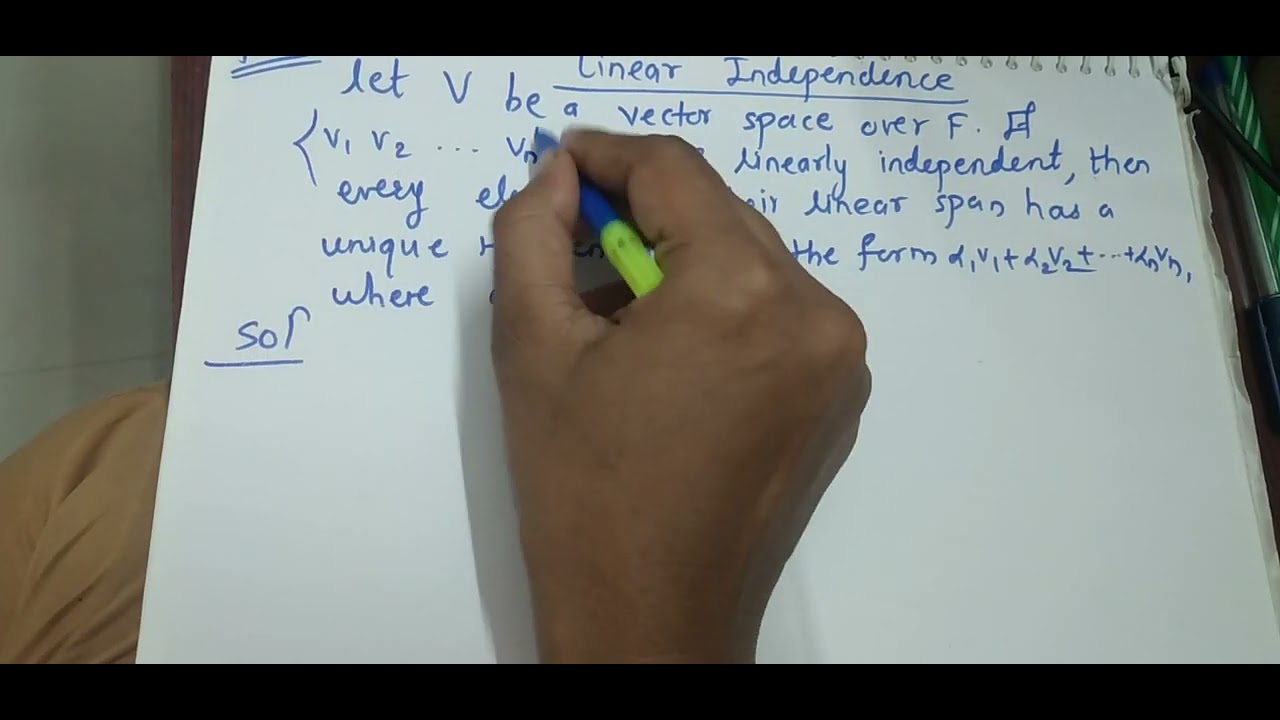 Linear Independence
let V be a vector space over F. If
{v₁ v₂ ... vₙ linearly independent, then
every linear span has a
unique the form α₁v₁+α₂v₂+...+αₙvₙ,
where
Solⁿ